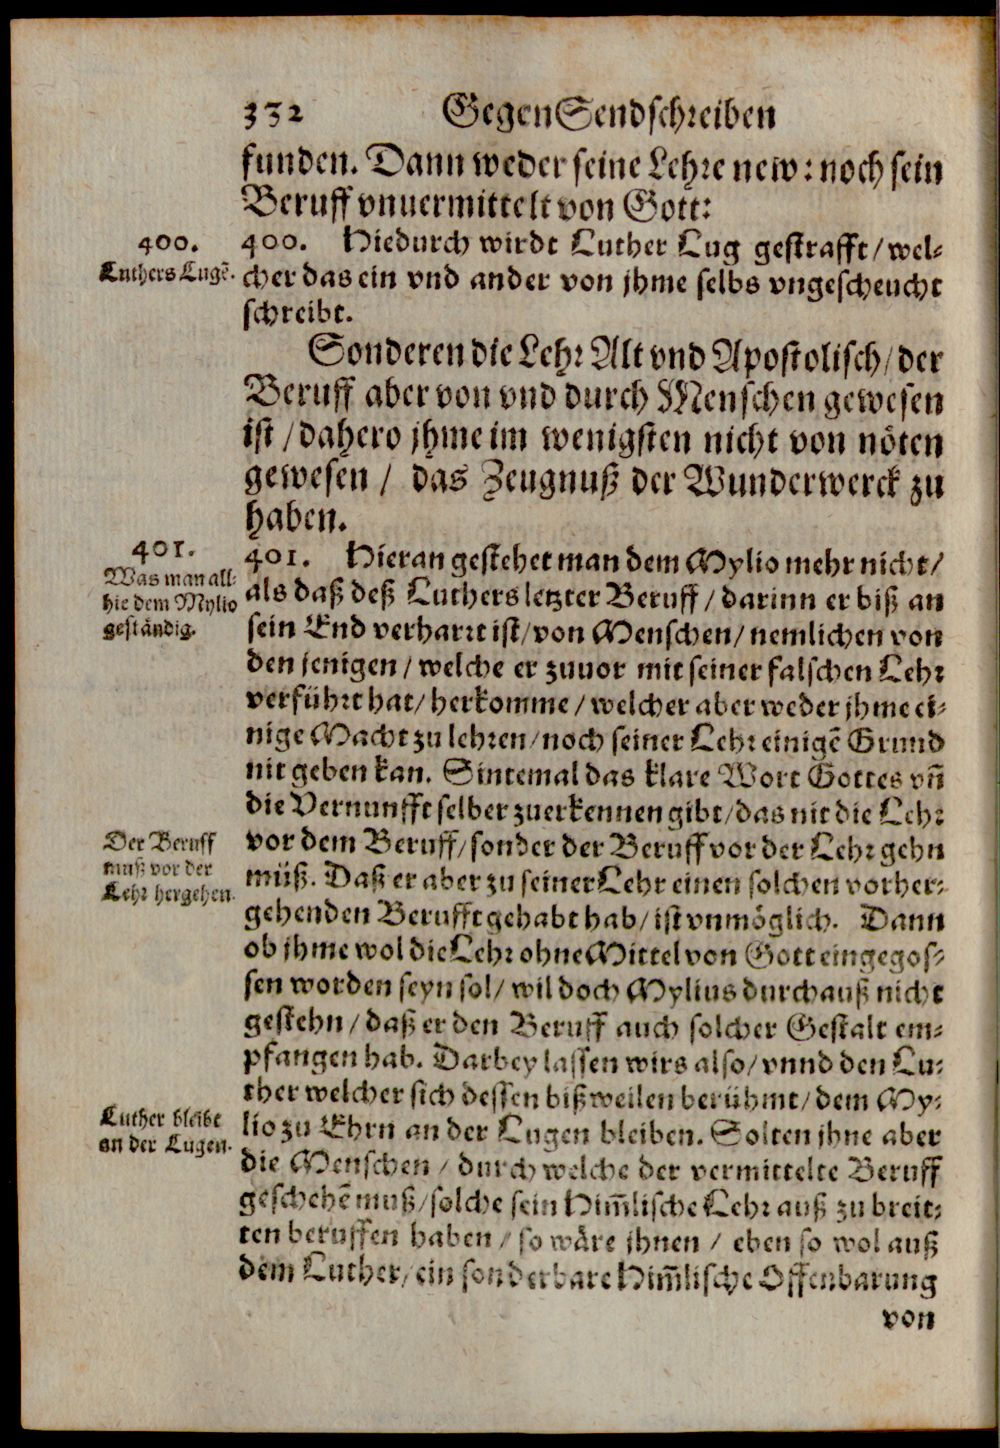 332 GegenSendschreiben
funden. Dann weder seine Lehre new: noch sein
Beruff vnuermittelt von Gott:
400.
Luthers Lugẽ.
400. Hiedurch wirdt Luther Lug gestrafft/ wel-
cher das ein vnd ander von jhme selbs vngescheucht
schreibt.
Sonderen die Lehr Alt vnd Apostolisch/ der
Beruff aber von vnd durch Menschen gewesen
ist / dahero jhme im wenigsten nicht von nöten
gewesen / das Zeugnuß der Wunderwerck zu
haben.
401.
Was man all-
hie dem Mylio
geständig.
401. Hieran gestehet man dem Mylio mehr nicht/
als daß deß Luthers letzter Beruff / darinn er biß an
sein End verharrt ist/ von Menschen/ nemlichen von
den jenigen / welche er zuuor mit seiner falschen Lehr
verführt hat/ herkomme / welcher aber weder jhme ei-
nige Macht zu lehren/ noch seiner Lehr einigẽ Grund
nit geben kan. Sintemal das klare Wort Gottes vñ
die Vernunfft selber zuerkennen gibt/ das nit die Lehr
Der Beruff
muß vor der
Lehr hergehen.
vor dem Beruff/ sonder der Beruff vor der Lehr gehn
müß. Daß er aber zu seiner Lehr einen solchen vorher-
gehenden Berufft gehabt hab/ ist vnmöglich. Dann
ob jhme wol die Lehr ohne Mittel von Gott eingegos-
sen worden seyn sol/ wil doch Mylius durchauß nicht
gestehn / daß er den Beruff auch solcher Gestalt em-
pfangen hab. Darbey lassen wirs also/ vnnd den Lu-
ther welcher sich dessen bißweilen berühmt/ dem My-
Luther bleibt
an der Lugen.
lio zu Ehrn an der Lugen bleiben. Solten jhne aber
die Menschen / durch welche der vermittelte Beruff
geschehẽ muß/ solche sein Him̃lische Lehr auß zu breit-
ten beruffen haben / so wäre jhnen / eben so wol auß
dem Luther/ ein sonderbare Him̃lische Offenbarung
von